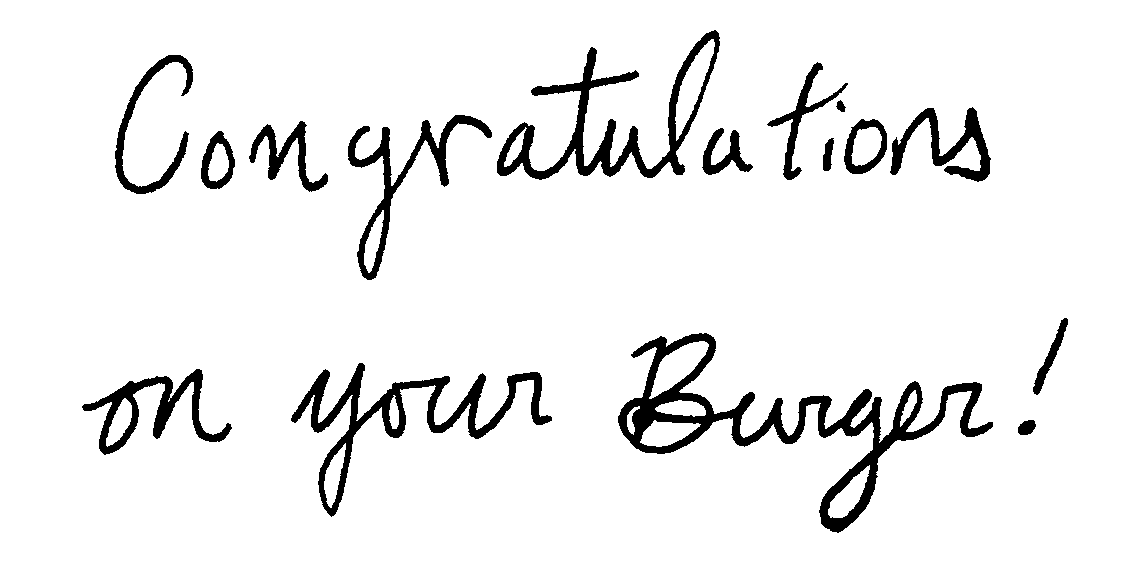 Congratulations
on your Burger!